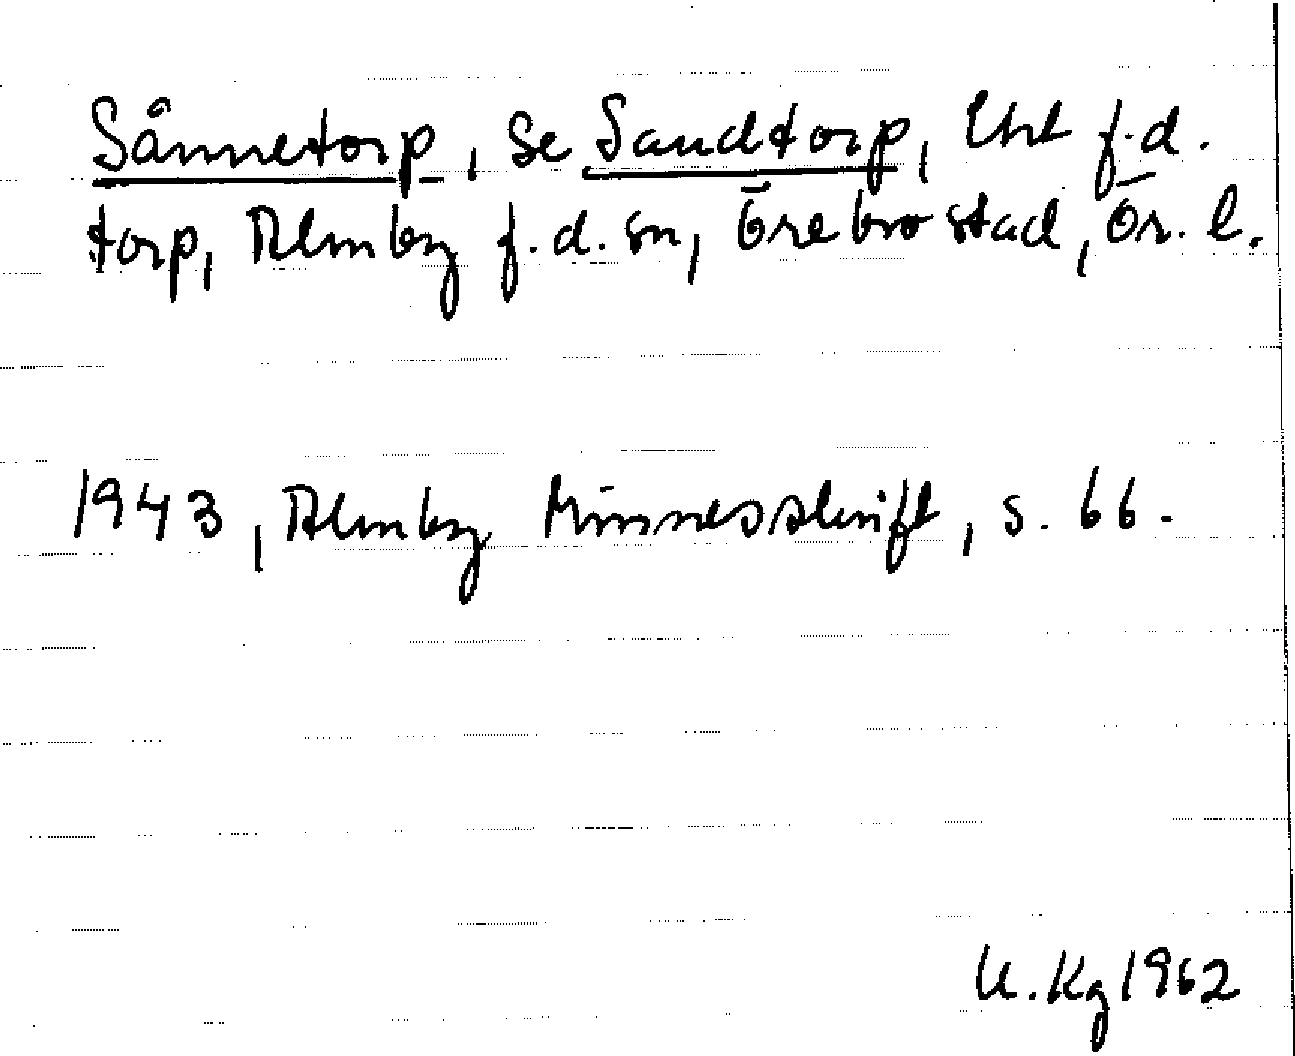 Sånnetorp, se Sandtorp, lht f.d.
torp, Almby f.d. sn, Örebro stad, Ör. l.
1943, Almby Minnesskrift, s. 66.
U. Kg 1962